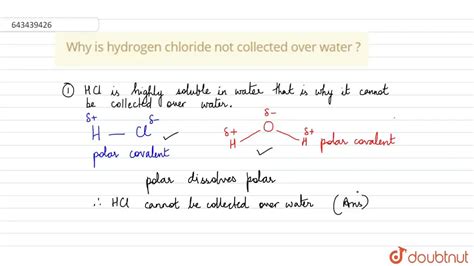 643439426
Why is hydrogen chloride not collected over water ?
① HCl is highly soluble in water that is why it cannot
be collected over water.
δ+ δ-
H — Cl
polar covalent
δ-
O
δ+ δ+
H H polar covalent
polar dissolves polar
∴ HCl cannot be collected over water (Ans)
doubtnut